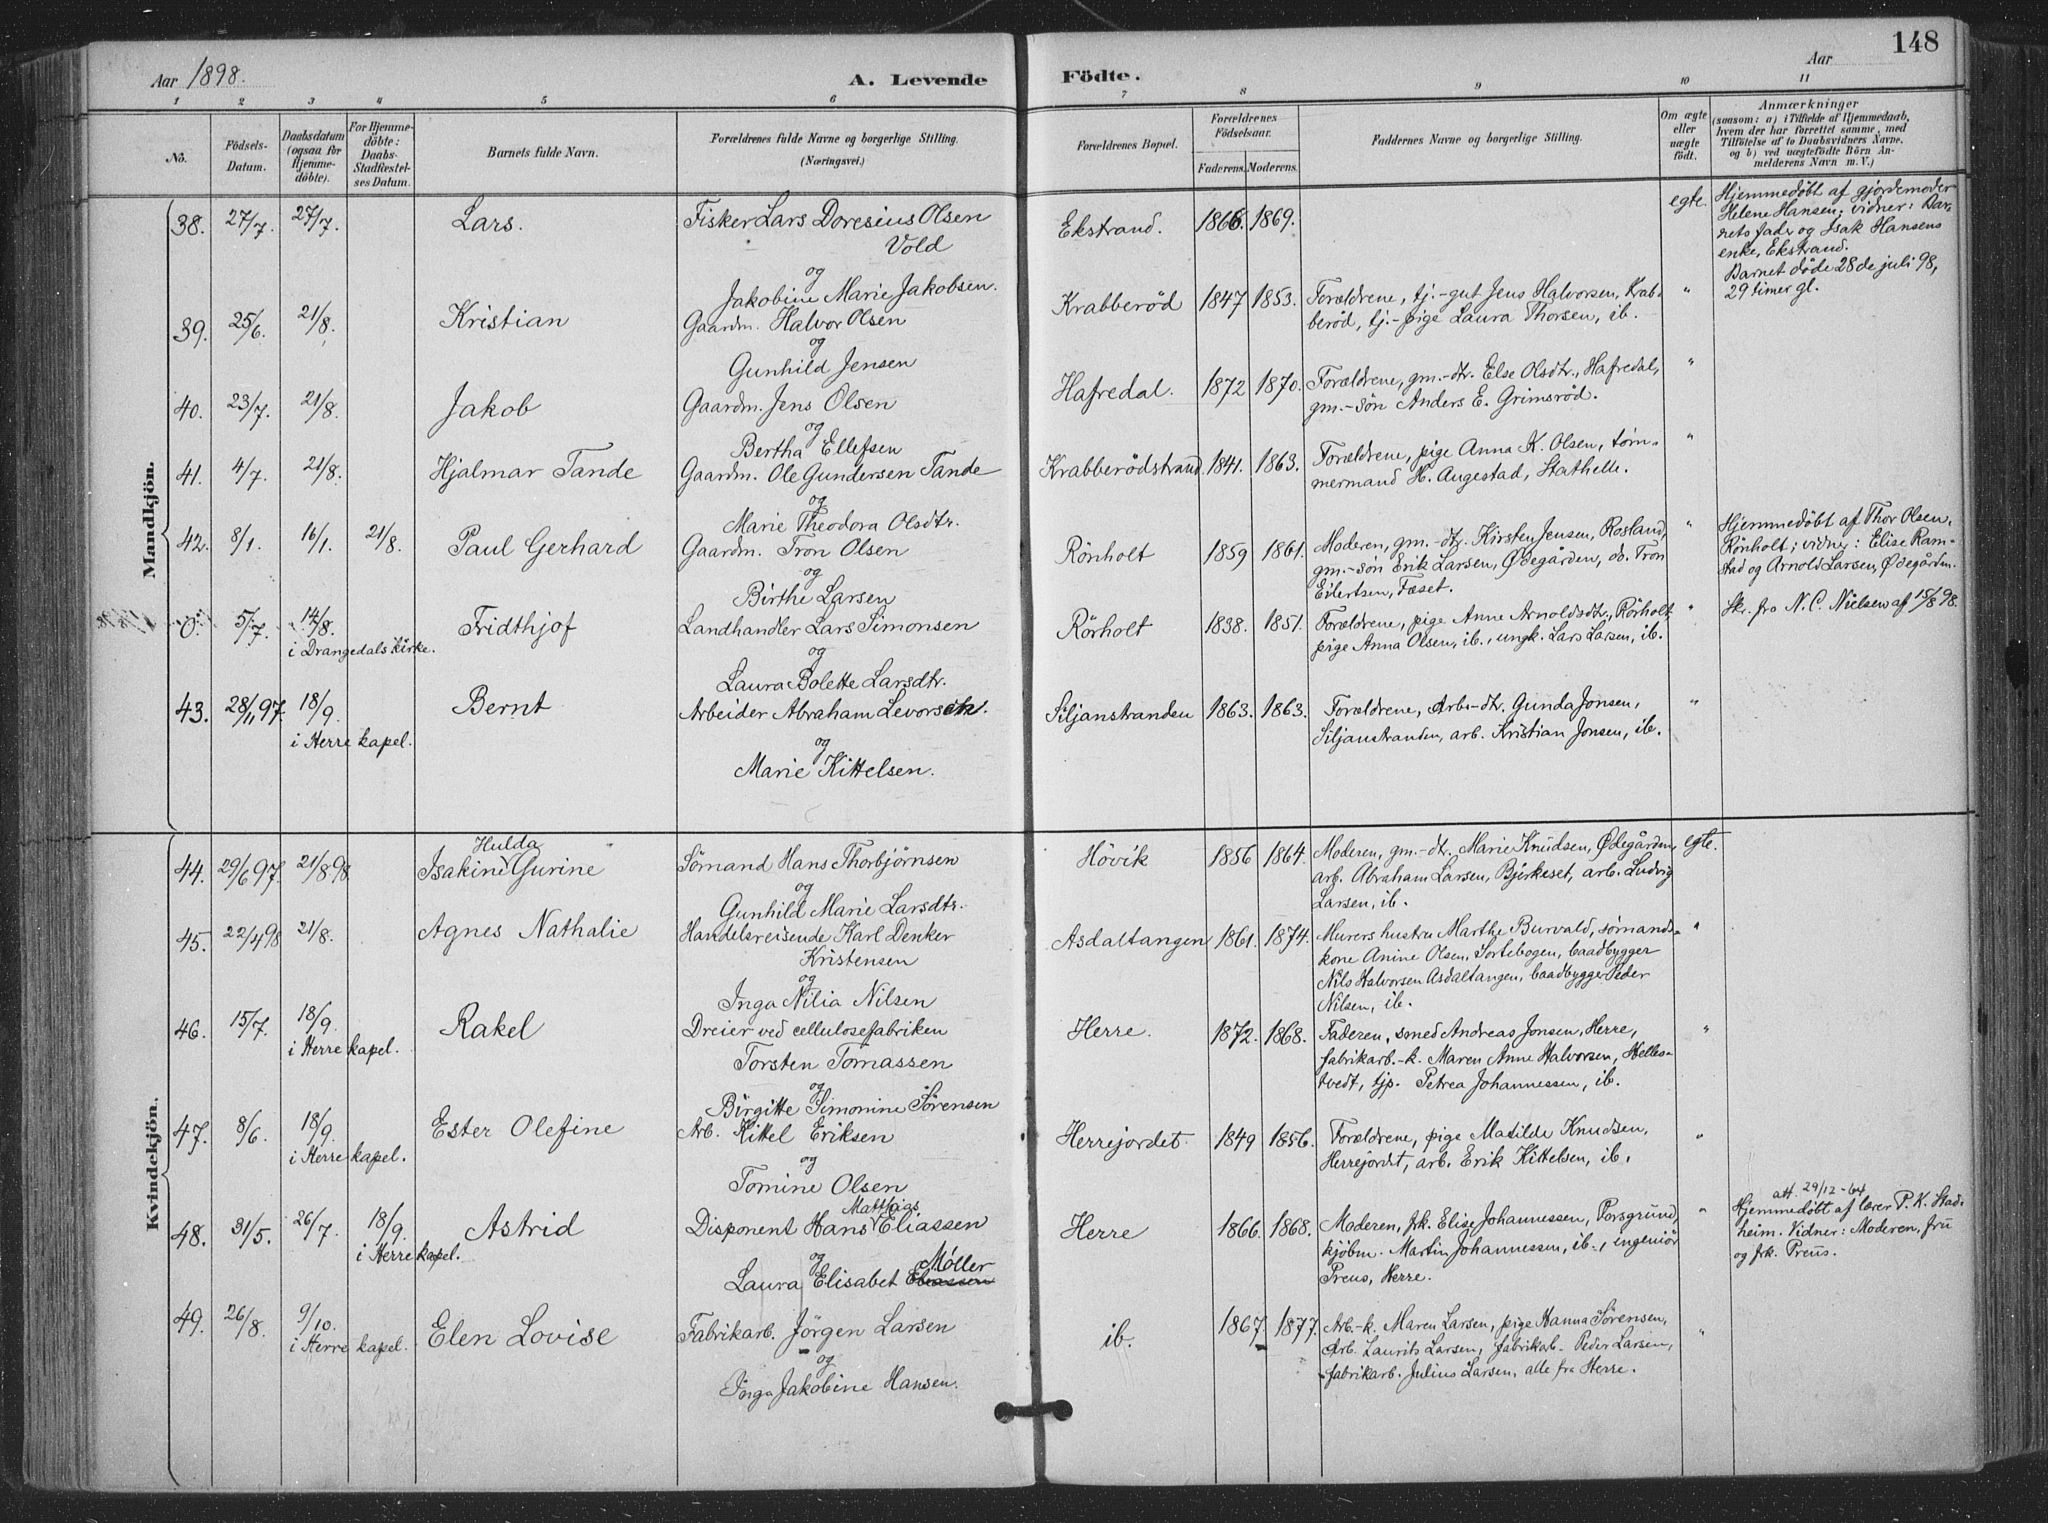 148
Aar 1898.
A. Levende
Födte.
Aar
1 2 3 4 5 6 7 8 9 10 11
No.
Födsels-
Datum.
Daabsdatum
(ogsaa for
Hjemme-
döbte).
For Hjemme-
döbte:
Daabs-
Stadfæstel-
ses Datum.
Barnets fulde Navn.
Forældrenes fulde Navne og borgerlige Stilling.
(Næringsvei.)
Forældrenes Bopæl.
Forældrenes
Födselsaar.
Faderens. Moderens.
Faddernes Navne og borgerlige Stilling.
Om ægte
eller
uægte
födt.
Anmærkninger
(saasom: a) i Tilfælde af Hjemmedaab,
hvem der har forrettet samme, med
Tilföielse af to Daabsvidners Navne.
og b) ved uægtefödte Börn An-
melderens Navn m. V.)
Mandkjön.
38. 27/7. 27/7. Lars. Fisker Lars Doresius Olsen
Vold
og
Jakobine Marie Jakobsen.
Ekstrand. 1866. 1869. egte.
Hjemmedøbt af gjordemoder
Helene Hansen; vidner: Bar-
nets fader og Isak Hansens
enke, Ekstrand.
Barnet døde 28de juli 98,
29 timer gl.
39. 25/6. 21/8. Kristian Gaardm. Halvor Olsen
og
Gunhild Jensen
Krabberød 1847 1853. Forældrene, tj.-gut Jens Halvorsen, Krab-
berød, tj.-pige Laura Thorsen, ib. "
40. 23/7. 21/8. Jakob Gaardm. Jens Olsen
og
Bertha Ellefsen
Hafredal. 1872 1870. Forældrene, gm.-dtr. Else Olsdtr., Hafredal,
gm.-søn Anders E. Grimsrød. "
41. 4/7. 21/8. Hjalmar Tande Gaardm. Ole Gundersen Tande
og
Marie Theodora Olsdtr.
Krabberødstrand 1841. 1863. Forældrene, pige Anna K. Olsen, tøm-
mermand H. Augestad, Stathelle. "
42. 8/1. 16/1. 21/8. Paul Gerhard Gaardm. Tron Olsen
og
Birthe Larsen
Rönholt 1859 1861. Moderen, gm.-dtr. Kirsten Jensen, Rosland,
gm.-søn Erik Larsen, Ødegården, do. Tron
Eilertsen, Fæset. "
Hjemmedøbt af Thor Olsen,
Rönholt; vidner: Elise Ram-
stad og Arnold Larsen, Ødegården.
0. 5/7. 14/8.
i Drangedals kirke.
Fridthjof Landhandler Lars Simonsen
og
Laura Bolette Larsdtr.
Rørholt 1838. 1851. Forældrene, pige Anne Arnoldsdtr, Rørholt,
pige Anna Olsen, ib., ungk. Lars Larsen, ib. "
Skr. fra N. C. Nielsen af 15/8 98.
43. 28/11 97. 18/9.
i Herre kapel.
Bernt Arbeider Abraham Levorsen.
og
Marie Kittelsen.
Siljanstranden 1863. 1863. Forældrene, Arb.-dtr. Gunda Jonsen,
Siljanstranden, arb. Kristian Jonsen, ib. "
Kvindekjön.
44. 29/6 97. 21/8 98. Hulda
Isakine Gurine Sømand Hans Thorbjørnsen
og
Gunhild Marie Larsdtr.
Høvik 1856 1864. Moderen, gm.-dtr. Marie Knudsen, Ødegården,
arb. Abraham Larsen, Bjerkeset, arb. Ludvig
Larsen, ib. egte.
45. 22/4 98 21/8. Agnes Nathalie Handelsreisende Karl Denker
Kristensen
og
Inga Nilia Nilsen
Asdaltangen 1861. 1874. Murers hustru Marthe Burvald, sømands-
kone Anine Olsen, Sortebogen, baadbygger
Nils Halvorsen Asdaltangen, baadbygger Peder
Nilsen, ib. "
46. 15/7. 18/9.
i Herre kapel.
Rakel Dreier ved cellulosefabriken
Torsten Tomassen
og
Birgitte Simonine Sørensen
Herre. 1872. 1868. Faderen, smed Andreas Jonsen, Herre,
fabrikarb.-k. Maren Anne Halvorsen, Helles-
tvedt, tjp. Petrea Johannessen, ib. "
47. 8/6. 18/9.
i Herre kapel.
Ester Olefine Arb. Kittel Eriksen
og
Tomine Olsen
Herrejordet. 1849 1856. Forældrene, pige Matilde Knudsen,
Herrejordet, arb. Erik Kittelsen, ib. "
48. 31/5. 26/7. 18/9.
i Herre kapel.
Astrid Matthias
Disponent Hans Eliassen
og
Møller
Laura Elisabet Eliassen
Herre 1866. 1868. Moderen, frk. Elise Johannessen, Porsgrund,
kjøbm. Martin Johannessen, ib., ingeniør
Preus, Herre. "
att. 29/12-64
Hjemmedøbt af lærer P. K. Stad-
heim. Vidner: Moderen, fru
og frk. Preus.
49. 26/8. 9/10.
i Herre kapel.
Elen Lovise Fabrikarb. Jörgen Larsen
og
Inga Jakobine Hansen.
ib. 1867. 1877. Arb.-k. Maren Larsen, pige Hanna Sørensen,
Arb. Laurits Larsen, fabrikab. Peder Larsen,
fabrikarb. Julius Larsen, alle fra Herre. "